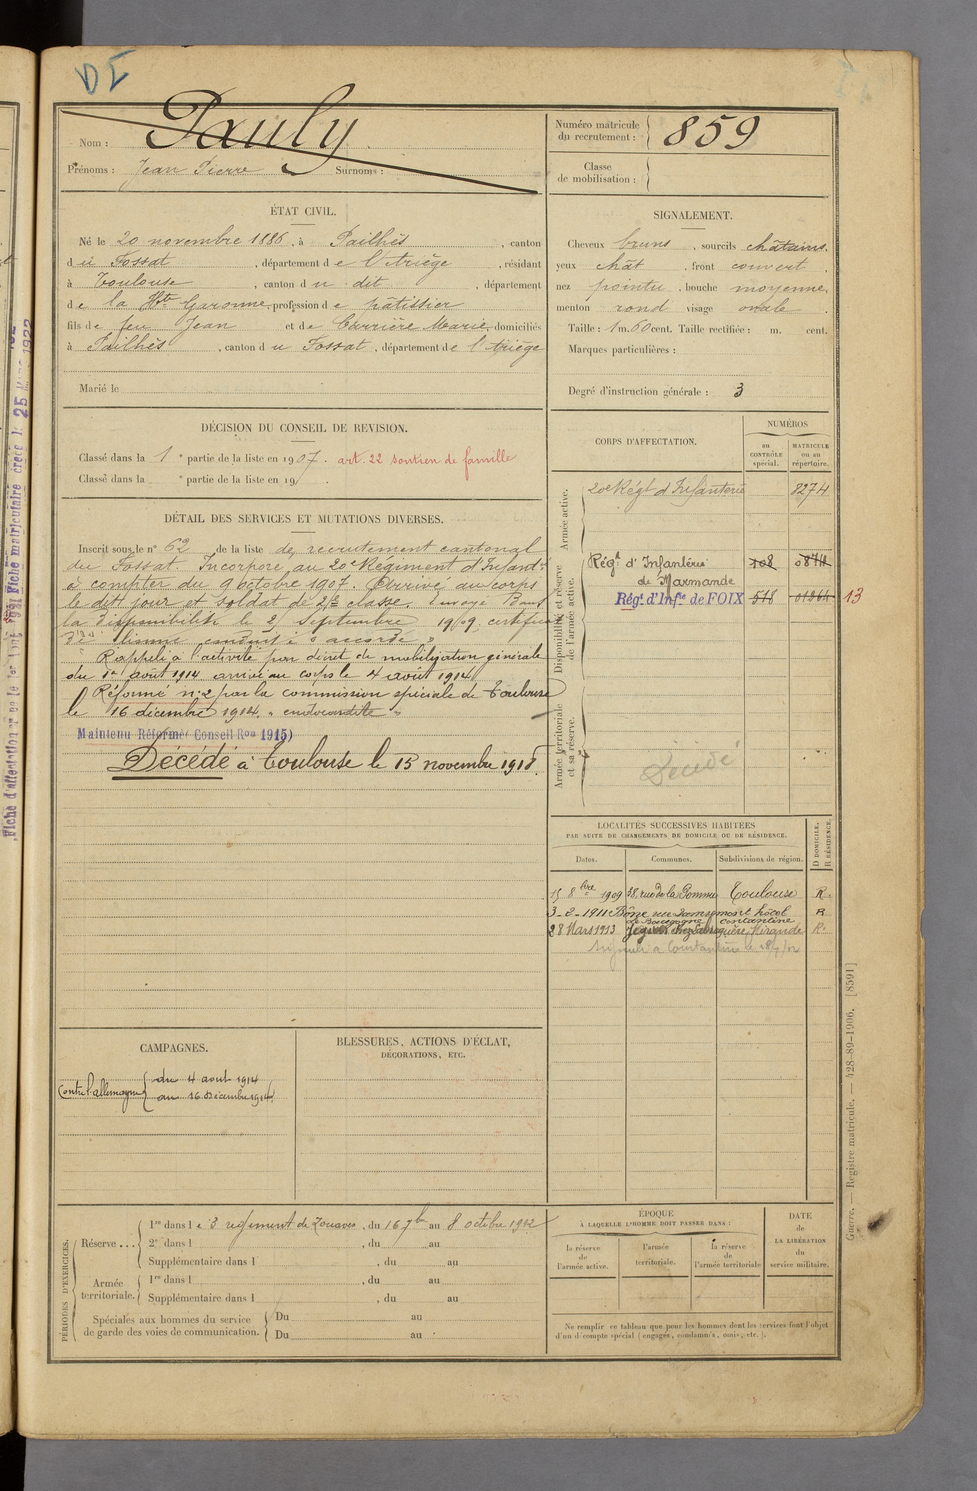 DE
Nom : Pauly
Prénoms : Jean Pierre Surnoms :
Numéro matricule du recrutement : 859
Classe de mobilisation :
ÉTAT CIVIL.
Né le 20 novembre 1886, à Pailhès, canton
du Fossat, département de l'Ariège, résidant
à Toulouse, canton du dit, département
de la Hte Garonne, profession de pâtissier
fils de feu Jean et de Carrière Marie, domiciliés
à Pailhès, canton du Fossat, département de l'Ariège
Marié le
SIGNALEMENT.
Cheveux bruns, sourcils châtains,
yeux chât, front couvert,
nez pointu, bouche moyenne,
menton rond visage ovale.
Taille : 1 m. 60 cent. Taille rectifiée : m. cent.
Marques particulières :
Degré d'instruction générale : 3
DÉCISION DU CONSEIL DE REVISION.
Classé dans la 1e partie de la liste en 1907. art. 22 soutien de famille
Classé dans la e partie de la liste en 19 .
DÉTAIL DES SERVICES ET MUTATIONS DIVERSES.
Inscrit sous le n° 62 de la liste de recrutement cantonal
du Fossat. Incorporé au 20e Régiment d'Infantie
à compter du 9 octobre 1907. Arrivé au corps
le dit jour et soldat de 2e classe. Envoyé dans
la disponibilité le 2 Septembre 1909 certificat
de bonne conduite "accordé"
Rappelé à l'activité par décret de mobilisation générale
du 1er août 1914 arrivé au corps le 4 août 1914
Réformé n° 2 par la commission spéciale de Toulouse
le 16 décembre 1914. "endocardite"
Maintenu Réformé (Conseil Ron 1915)
Décédé à Toulouse le 13 novembre 1918.
CORPS D'AFFECTATION.
NUMÉROS
au CONTRÔLE spécial.
MATRICULE ou au répertoire.
Armée active.
20e Régt d'Infanterie 8274
Disponibilité et réserve de l'armée active.
Régt d'Infanterie 108 0874
de Marmande
Régt d'Infie de FOIX 518 01364 13
Armée territoriale et sa réserve.
Décédé
LOCALITÉS SUCCESSIVES HABITÉES
PAR SUITE DE CHANGEMENTS DE DOMICILE OU DE RÉSIDENCE.
Dates. Communes. Subdivisions de région. D DOMICILE. R RÉSIDENCE.
15 8bre 1909 38, rue de la Pomme Toulouse R.
3-2-1911 Bône, rue hôtel R
de Bourgogne Constantine
28 Mars 1913 Mirande R.
à Constantine le
CAMPAGNES.
Contre l'allemagne
du 4 août 1914
au 16 Décembre 1914.
BLESSURES, ACTIONS D'ÉCLAT,
DÉCORATIONS, ETC.
PÉRIODES D'EXERCICES.
Réserve ...
1re dans le 3 régiment de Zouaves, du 16 7b au 8 octobre 1912
2e dans l , du au
Supplémentaire dans l , du au
Armée territoriale.
1re dans l , du au
Supplémentaire dans l , du au
Spéciales aux hommes du service de garde des voies de communication.
Du au
Du au
ÉPOQUE
À LAQUELLE L'HOMME DOIT PASSER DANS :
la réserve de l'armée active.
l'armée territoriale.
la réserve de l'armée territoriale
DATE de LA LIBÉRATION du service militaire.
Ne remplir ce tableau que pour les hommes dont les services font l'objet
d'un décompte spécial (engagés, condamnés, omis, etc.).
Guerre. — Registre matricule. — 428-89-1906. [8591]